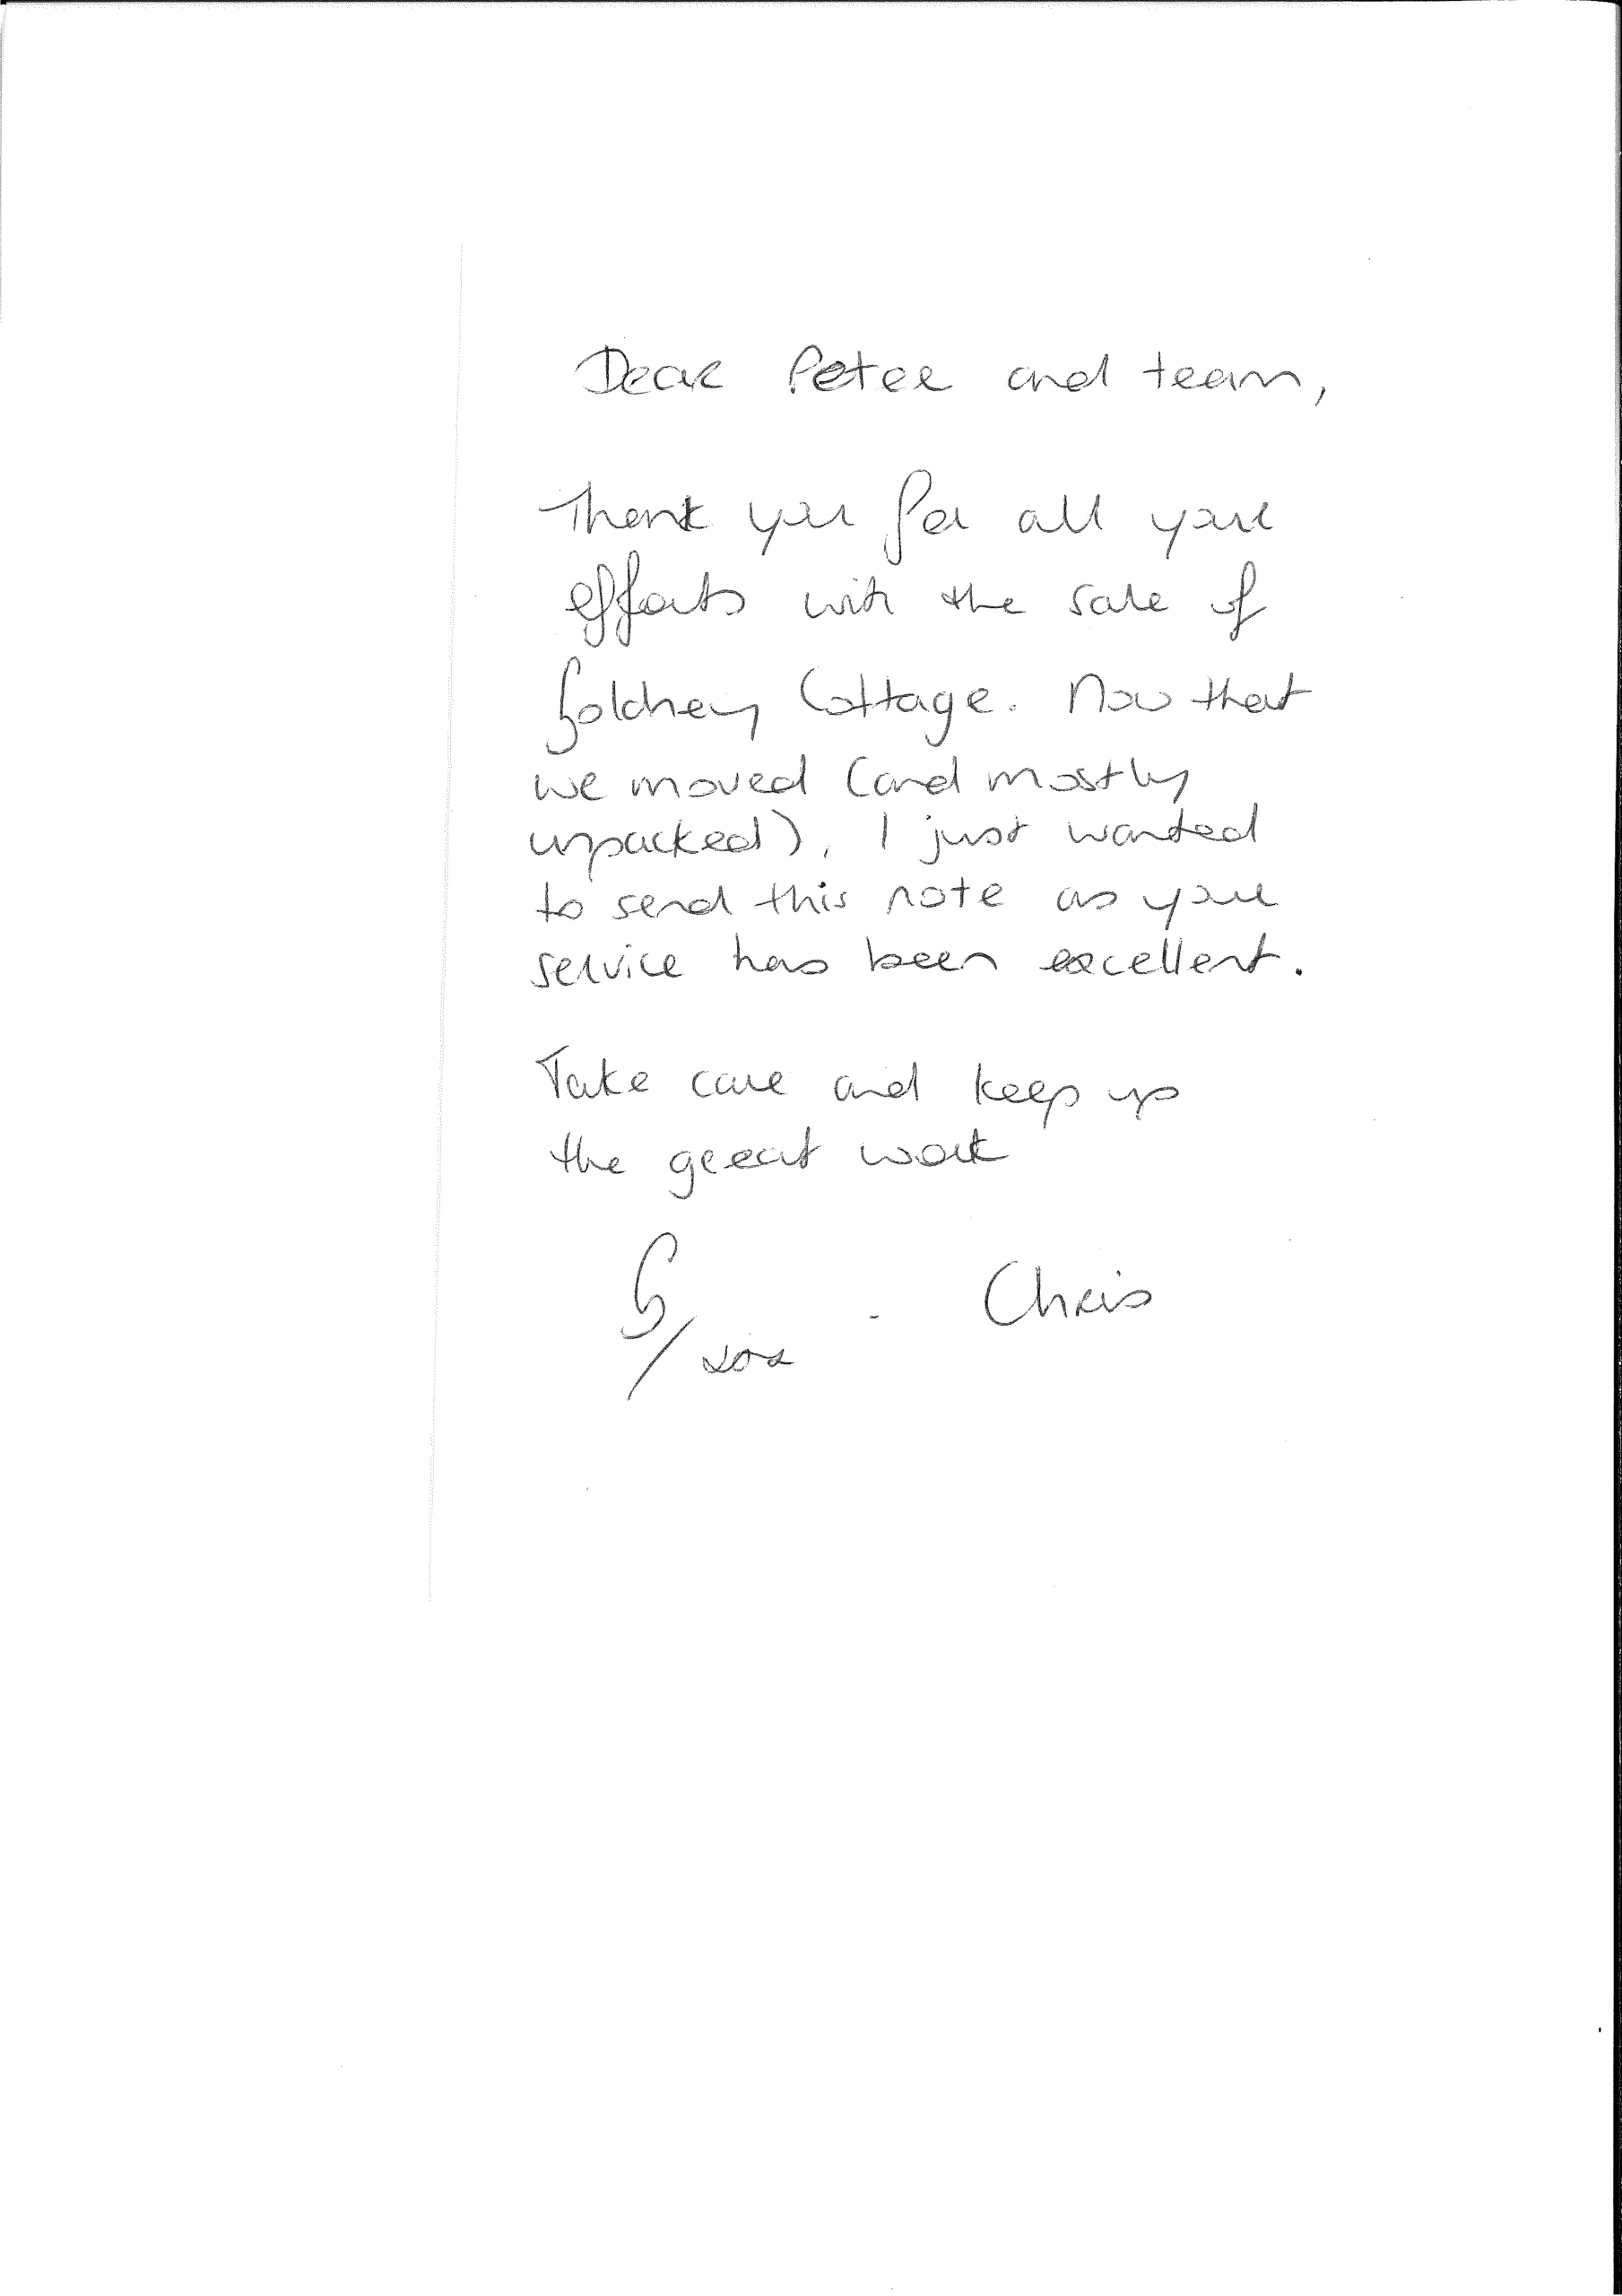 Dear Peter and team,
Thank you for all your
efforts with the sale of
Goldney Cottage. Now that
we moved (and mostly
unpacked), I just wanted
to send this note as your
service has been excellent.
Take care and keep up
the great work
Chris